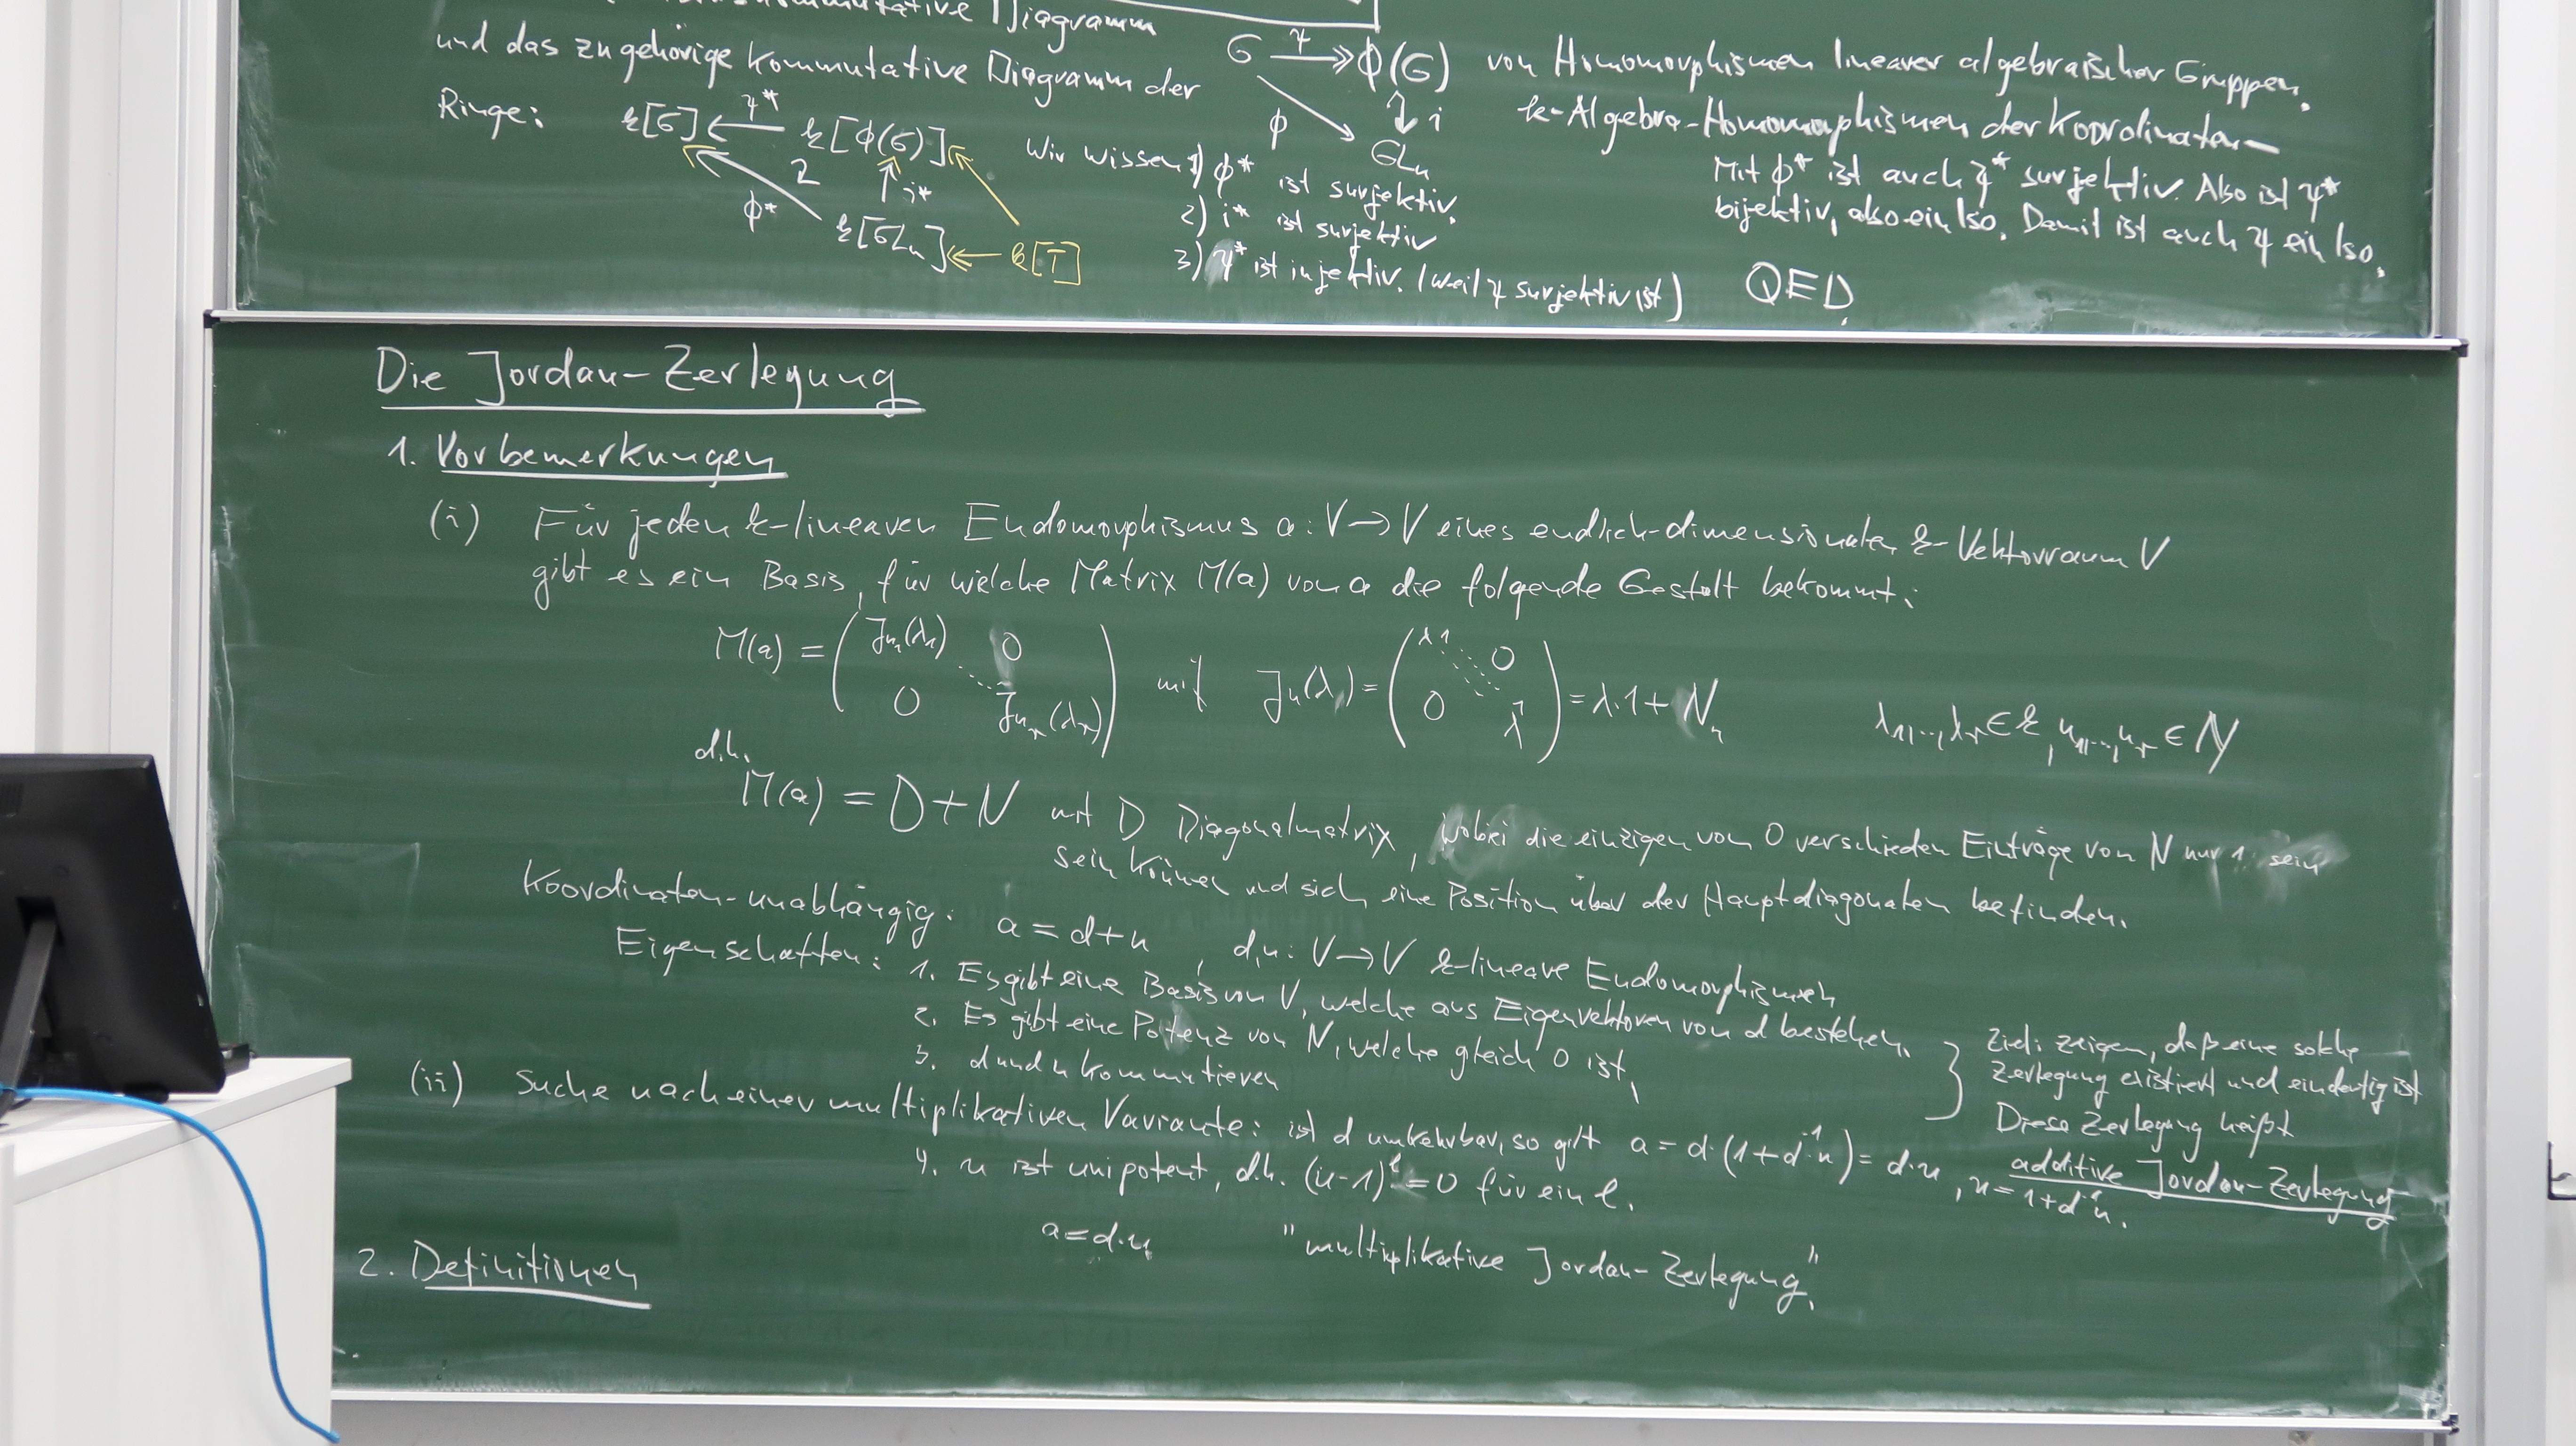 kommutative Diagramm
und das zugehörige kommutative Diagramm der
G ψ ↠ ϕ(G) von Homomorphismen linearer algebraischer Gruppen.
ϕ ↘ ↓ i GLn
k-Algebra-Homomorphismen der Koordinaten-
Ringe: k[G] ← ψ* k[ϕ(G)]
ϕ* ↑ i*
k[GLn] ← k[T]
Wir wissen 1) ϕ* ist surjektiv.
2) i* ist surjektiv
3) ψ* ist injektiv. (weil ψ surjektiv ist)
Mit ϕ* ist auch ψ* surjektiv. Also ist ψ*
bijektiv, also ein Iso. Damit ist auch ψ ein Iso.
QED.
Die Jordan-Zerlegung
1. Vorbemerkungen
(i) Für jeden k-linearen Endomorphismus a: V→V eines endlich-dimensionalen k-Vektorraum V
gibt es ein Basis, für welche Matrix M(a) von a die folgende Gestalt bekommt:
M(a) = ( J_{n_1}(λ_1) 0 ⋱ 0 J_{n_r}(λ_r) ) mit J_n(λ) = ( λ 1 0 ⋱ 0 λ ) = λ·1 + N_n λ_1,…,λ_r ∈ k, n_1,…,n_r ∈ N
d.h.
M(a) = D+N mit D Diagonalmatrix, wobei die einzigen von 0 verschieden Einträge von N nur 1 sein
sein können und sich eine Position über der Hauptdiagonalen befinden.
Koordinaten-unabhängig: a = d+n, d,n: V→V k-lineare Endomorphismen
Eigenschaften: 1. Es gibt eine Basis von V, welche aus Eigenvektoren von d bestehen.
2. Es gibt eine Potenz von N, welche gleich 0 ist.
3. d und n kommutieren
} Ziel: zeigen, daß eine solche
Zerlegung existiert und eindeutig ist
Diese Zerlegung heißt
additive Jordan-Zerlegung
(ii) Suche nach einer multiplikativen Variante: ist d umkehrbar, so gilt a = d·(1+d⁻¹·n) = d·u, u = 1+d⁻¹n.
4. u ist unipotent, d.h. (u-1)^ℓ = 0 für ein ℓ.
a = d·u "multiplikative Jordan-Zerlegung".
2. Definitionen